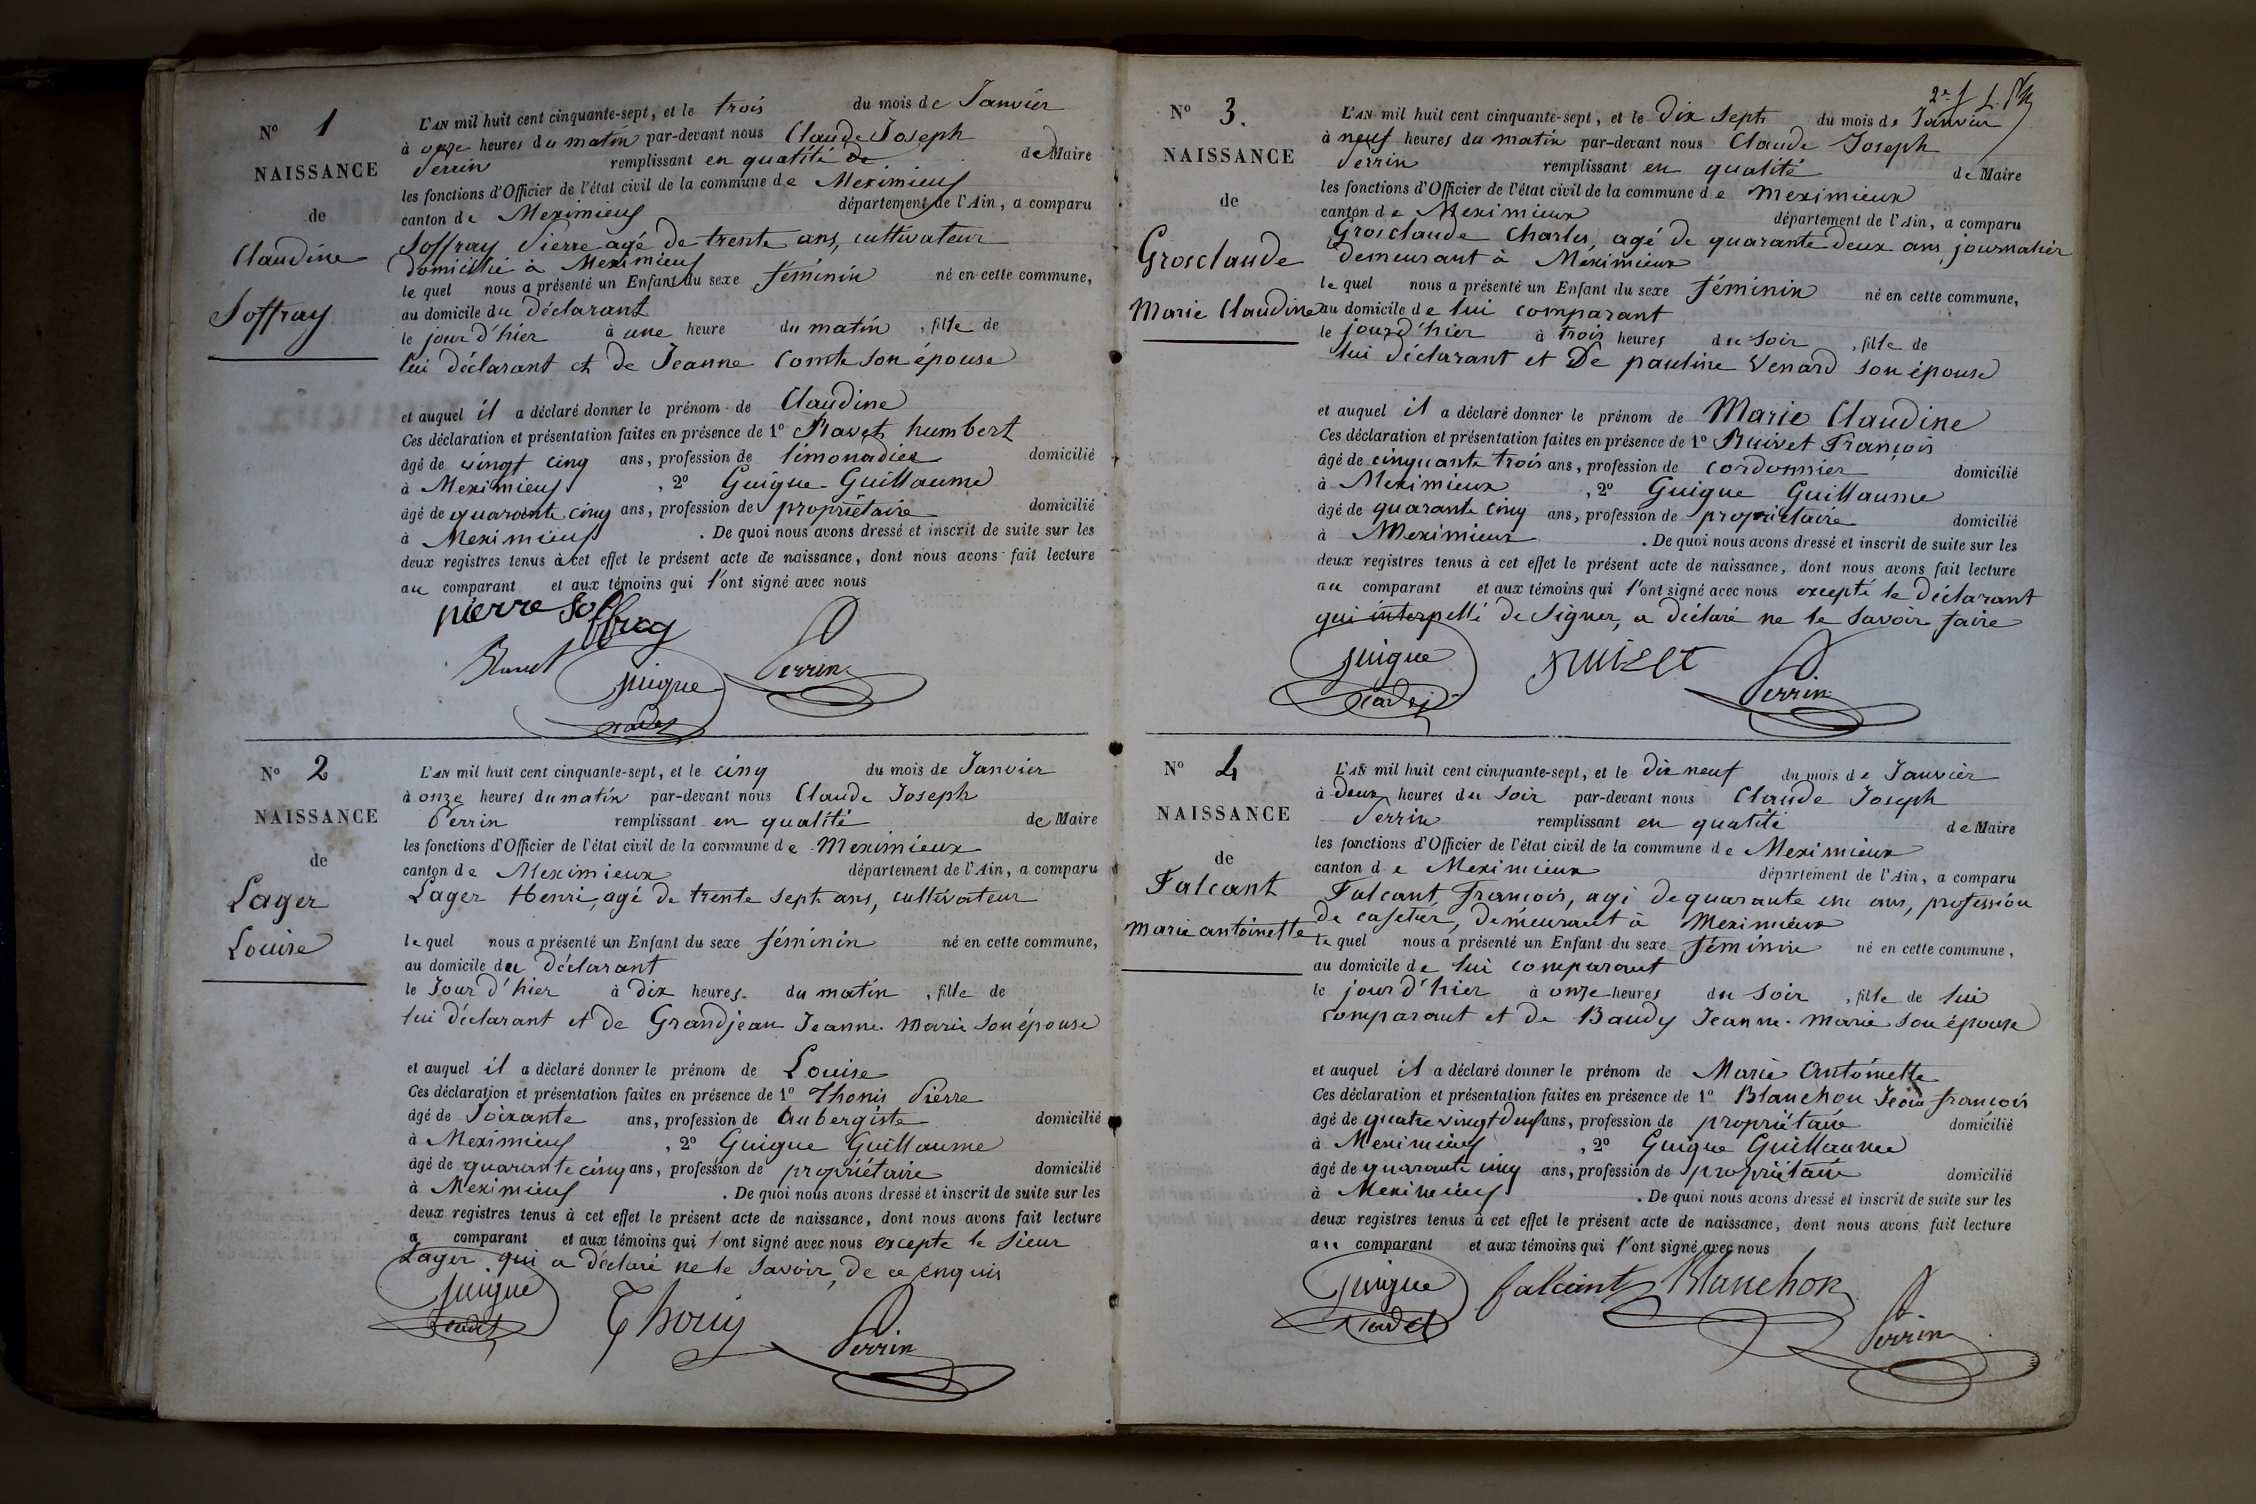 N° 1
NAISSANCE
de
Claudine
Soffray
L'AN mil huit cent cinquante-sept, et le trois du mois de Janvier
à onze heures du matin par-devant nous Claude Joseph
Perrin remplissant en qualité de de Maire
les fonctions d'Officier de l'état civil de la commune de Meximieux
canton de Meximieux département de l'Ain, a comparu
Soffray Pierre agé de trente ans, cultivateur
domicilié à Meximieux
le quel nous a présenté un Enfant du sexe féminin né en cette commune,
au domicile du déclarant
le jour d'hier à une heure du matin, fille de
lui déclarant et de Jeanne Comte son épouse
et auquel il a déclaré donner le prénom de Claudine
Ces déclaration et présentation faites en présence de 1° Ravet humbert
âgé de vingt cinq ans, profession de limonadier domicilié
à Meximieux, 2° Guigue Guillaume
âgé de quarante cinq ans, profession de propriétaire domicilié
à Meximieux. De quoi nous avons dressé et inscrit de suite sur les
deux registres tenus à cet effet le présent acte de naissance, dont nous avons fait lecture
au comparant et aux témoins qui l'ont signé avec nous
pierre Soffray
Ravet guigue Perrin
cadet
N° 2
NAISSANCE
de
Lager
Louise
L'AN mil huit cent cinquante-sept, et le cinq du mois de Janvier
à onze heures du matin par-devant nous Claude Joseph
Perrin remplissant en qualité de Maire
les fonctions d'Officier de l'état civil de la commune de Meximieux
canton de Meximieux département de l'Ain, a comparu
Lager Henri, agé de trente sept ans, cultivateur
le quel nous a présenté un Enfant du sexe féminin né en cette commune,
au domicile du déclarant
le Jour d'hier à dix heures du matin, fille de
lui déclarant et de Grandjean Jeanne Marie son épouse
et auquel il a déclaré donner le prénom de Louise
Ces déclaration et présentation faites en présence de 1° Thonis Pierre
âgé de Soixante ans, profession de Aubergiste domicilié
à Meximieux, 2° Guigue Guillaume
âgé de quarante cinq ans, profession de propriétaire domicilié
à Meximieux. De quoi nous avons dressé et inscrit de suite sur les
deux registres tenus à cet effet le présent acte de naissance, dont nous avons fait lecture
a comparant et aux témoins qui l'ont signé avec nous excepte le Sieur
Lager qui a déclaré ne le savoir, de ce enquis
guigue
cadet Perrin
N° 3.
NAISSANCE
de
Grosclaude
Marie Claudine
L'AN mil huit cent cinquante-sept, et le Dix Sept du mois de Janvier
à neuf heures du matin par-devant nous Claude Joseph
Perrin remplissant en qualité de Maire
les fonctions d'Officier de l'état civil de la commune de Meximieux
canton de Meximieux département de l'Ain, a comparu
Grosclaude Charles, agé de quarante deux ans, journalier
demeurant à Meximieux
le quel nous a présenté un Enfant du sexe féminin né en cette commune,
au domicile de lui comparant
le jour d'hier à trois heures du soir, fille de
lui déclarant et De pauline Venard son épouse
et auquel il a déclaré donner le prénom de Marie Claudine
Ces déclaration et présentation faites en présence de 1° Ruivet François
âgé de cinquante trois ans, profession de cordonnier domicilié
à Meximieux, 2° Guigue Guillaume
âgé de quarante cinq ans, profession de propriétaire domicilié
à Meximieux. De quoi nous avons dressé et inscrit de suite sur les
deux registres tenus à cet effet le présent acte de naissance, dont nous avons fait lecture
au comparant et aux témoins qui l'ont signé avec nous excepté le déclarant
qui interpellé de signer, a déclaré ne le savoir faire
guigue ruivet Perrin
cadet
N° 4
NAISSANCE
de
Falcant
Marie antoinette
L'AN mil huit cent cinquante-sept, et le dix neuf du mois de Janvier
à Deux heures du soir par-devant nous Claude Joseph
Perrin remplissant en qualité de Maire
les fonctions d'Officier de l'état civil de la commune de Meximieux
canton de Meximieux département de l'Ain, a comparu
Falcant François, agé de quarante un ans, profession
de cafetier, demeurant à Meximieux
le quel nous a présenté un Enfant du sexe féminin né en cette commune,
au domicile de lui comparant
le jour d'hier à onze heures du soir, fille de lui
comparant et de Baudy Jeanne Marie son épouse
et auquel il a déclaré donner le prénom de Marie Antoinette
Ces déclaration et présentation faites en présence de 1° Blanchon Jean françois
âgé de quatre vingt deux ans, profession de propriétaire domicilié
à Meximieux, 2° Guigue Guillaume
âgé de quarante cinq ans, profession de propriétaire domicilié
à Meximieux. De quoi nous avons dressé et inscrit de suite sur les
deux registres tenus à cet effet le présent acte de naissance, dont nous avons fait lecture
au comparant et aux témoins qui l'ont signé avec nous
guigue falcant Blanchon
cadet Perrin